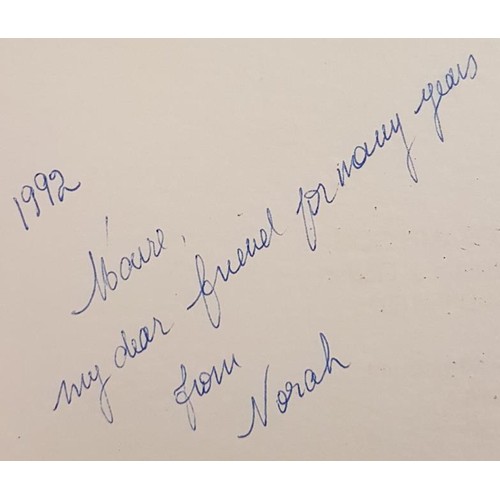 1992
Moure,
my dear friend for many years
from
Norah